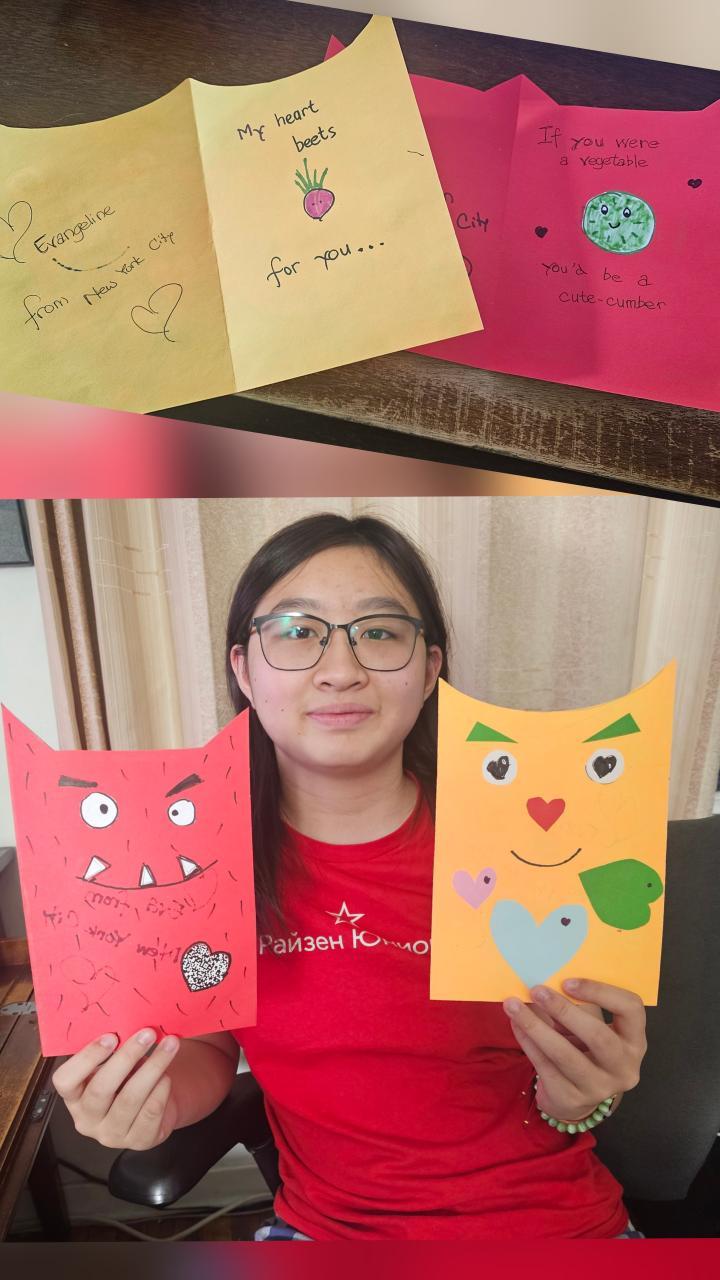 My heart
beets
for you...
Evangeline
from New York City
If you were
a vegetable
you'd be a
cute-cumber
City
New York City
from
Райзен Юнио